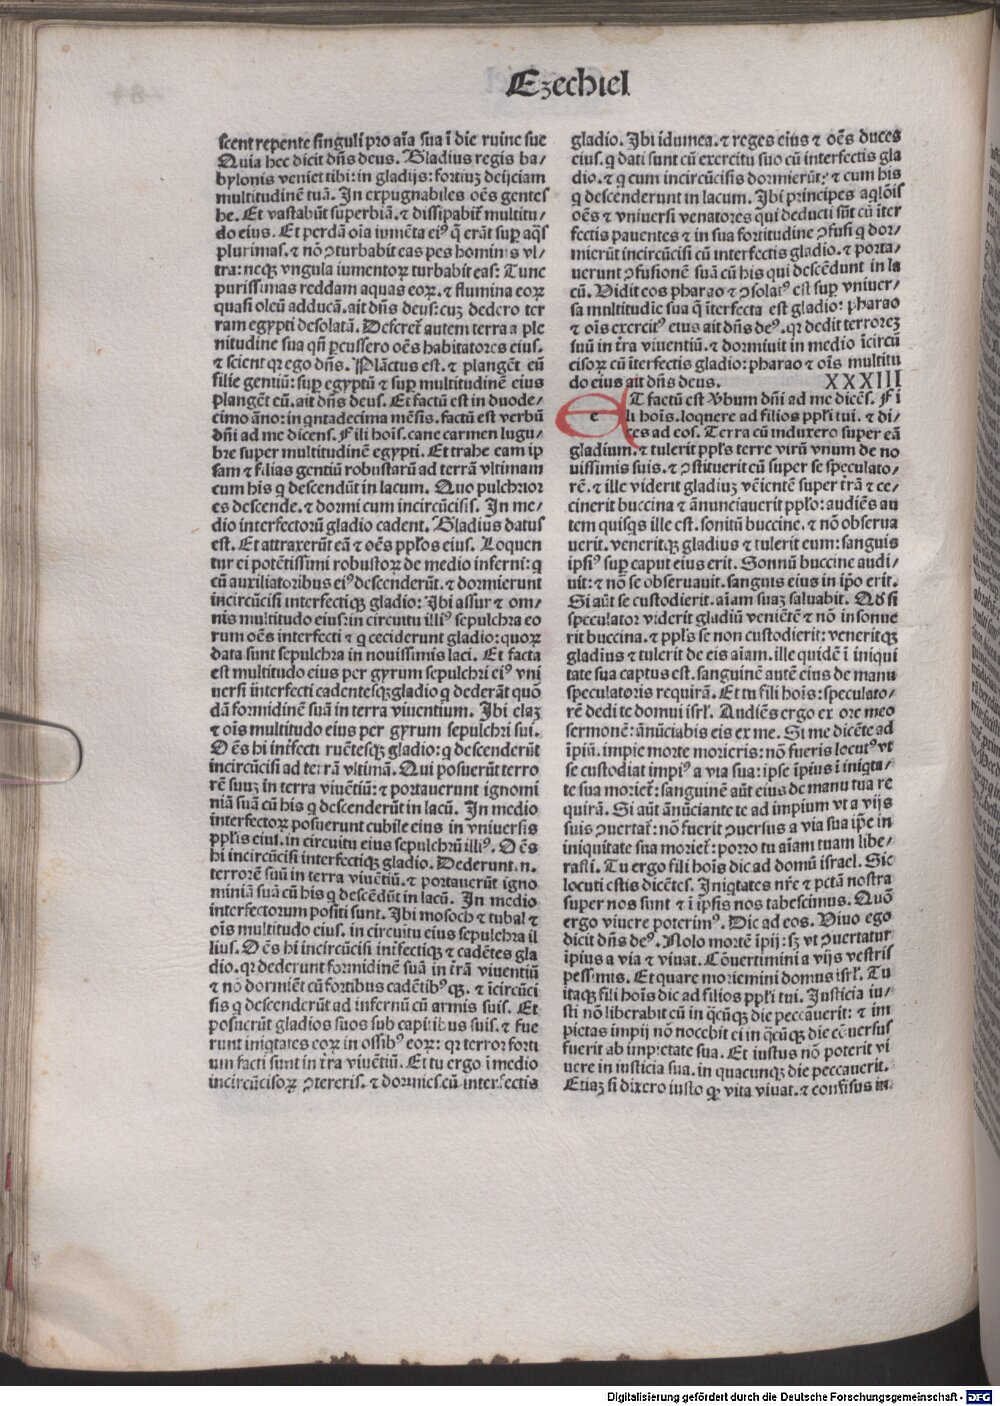 Ezechiel
scent repente singuli pro aīa sua ī die ruine sue
Quia hec dicit dñs deus. Gladius regis ba/
bylonis veniet tibi: in gladijs: fortiuꝫ deijciam
multitudinē tuā. In expugnabiles oēs gentes
he. Et vastabūt superbiā. ⁊ dissipabit᷑ multitu/
do eius. Et perdā oīa iumēta eiꝰ q̄ erāt sup̱ aq̄s
plurimas. ⁊ nō ꝯturbabit eas pes hominis vl/
tra: neqꝫ vngula iumentoꝝ turbabit eas: Tunc
purissimas reddam aquas eoꝝ. ⁊ flumina eoꝝ
quasi oleū adducā. ait dñs deus: cuꝫ dedero ter
ram egypti desolatā. Deseret᷑ autem terra a ple
nitudine sua qñ ꝑcussero oēs habitatores eius.
⁊ scient qꝛ ego dñs. Plāctus est. ⁊ plangēt eū
filie gentiū: sup̱ egyptū ⁊ sup̱ multitudinē eius
plangēt eū. ait dñs deus. Et factū est in duode/
cimo āno: in qntadecima mēsis. factū est verbū
dñi ad me dicens. Fili hoīs. cane carmen lugu/
bre super multitudinē egypti. Et trahe eam ip
sam ⁊ filias gentiū robustarū ad terrā vltimam
cum his q descendūt in lacum. Quo pulchrior
es descende. ⁊ dormi cum incircūcisis. In me/
dio interfectorū gladio cadent. Gladius datus
est. Et attraxerūt eā ⁊ oēs pp̄los eius. Loquen
tur ei potētissimi robustoꝝ de medio inferni: q
cū auxiliatoribus eiꝰ descenderūt. ⁊ dormierunt
incircūcisi interfectiqꝫ gladio: Ibi assur ⁊ om/
nis multitudo eius: in circuitu illiꝰ sepulchra eo
rum oēs interfecti ⁊ q ceciderunt gladio: quoꝝ
data sunt sepulchra in nouissimis laci. Et facta
est multitudo eius per gyrum sepulchri eiꝰ vni
uersi interfecti cadentesqꝫ gladio q dederāt quō
dā formidinē suā in terra viuentium. Ibi elaꝫ
⁊ oīs multitudo eius per gyrum sepulchri sui.
Oēs hi int̄fecti ruētesqꝫ gladio: q descenderūt
incircūcisi ad terrā vltimā. Qui posuerūt terro
rē suuꝫ in terra viuētiū: ⁊ portauerunt ignomi
niā suā cū his q descenderūt in lacū. In medio
interfectoꝝ posuerunt cubile eius in vniuersis
pp̄lis eius. in circuitu eius sepulchrū illiꝰ. Oēs
hi incircūcisi interfectiqꝫ gladio. Dederunt .n.
terrorē suū in terra viuētiū. ⁊ portauerūt igno
miniā suā cū his q descēdūt in lacū. In medio
interfectorum positi sunt. Ibi mosoch ⁊ tubal ⁊
oīs multitudo eius. in circuitu eius sepulchra il
lius. Oēs hi incircūcisi int̄fectiqꝫ ⁊ cadētes gla
dio. qꝛ dederunt formidinē suā in t̄rā viuentiū
⁊ nō dormiēt cū fortibus cadētibꝰ qꝫ. ⁊ īcircūci
sis q descenderūt ad infernū cū armis suis. Et
posuerūt gladios suos sub capitibus suis. ⁊ fue
runt iniqtates eoꝝ in ossibꝰ eoꝝ: qꝛ terror forti
um facti sunt in t̄ra viuētiū. Et tu ergo ī medio
incircūcisoꝝ ꝯtereris. ⁊ dormies cū interfectis
gladio. Ibi idumea. ⁊ reges eius ⁊ oēs duces
eius. q dati sunt cū exercitu suo cū interfectis gla
dio. ⁊ q cum incircūcisis dormierūt: ⁊ cum his
q descenderunt in lacum. Ibi principes aqlōis
oēs ⁊ vniuersi venatores qui deducti sūt cū īter
fectis pauentes ⁊ in sua fortitudine ꝯfusi q dor/
mierūt incircūcisi cū interfectis gladio. ⁊ porta/
uerunt ꝯfusionē suā cū his qui descēdunt in la
cū. Vidit eos pharao ⁊ ꝯsolatꝰ est sup̱ vniuer/
sa multitudie sua q̄ īterfecta est gladio: pharao
⁊ oīs exercitꝰ eius ait dñs deꝰ. qꝛ dedit terroreꝫ
suū in t̄ra viuentiū. ⁊ dormiuit in medio īcircū
cisoꝝ cū īterfectis gladio: pharao ⁊ oīs multitu
do eius ait dñs deus. XXXIII
eT factū est v̄bum dñi ad me dicēs. Fi
li hoīs. loquere ad filios pp̄li tui. ⁊ di/
ces ad eos. Terra cū induxero super eā
gladium. ⁊ tulerit pp̄ls terre virū vnum de no
uissimis suis. ⁊ ꝯstituerit cū super se speculato/
rē. ⁊ ille viderit gladiuꝫ vēientē super t̄rā ⁊ ce/
cinerit buccina ⁊ ānunciauerit pp̄lo: audiēs au
tem quisqs ille est. sonitū buccine. ⁊ nō obserua
uerit. veneritqꝫ gladius ⁊ tulerit eum: sanguis
ipsiꝰ sup̱ caput eius erit. Sonnū buccine audi/
uit: ⁊ nō se obseruauit. sanguis eius in ip̄o erit.
Si aūt se custodierit. aīam suaꝫ saluabit. Qđ si
speculator viderit gladiū veniētē ⁊ nō insonue
rit buccina. ⁊ pp̄ls se non custodierit: veneritqꝫ
gladius ⁊ tulerit de eis aīam. ille quidē ī iniqui
tate sua captus est. sanguinē autē eius de manu
speculatoris requirā. Et tu fili hoīs: speculato/
rē dedi te domui isrł. Audiēs ergo ex ore meo
sermonē: ānūciabis eis ex me. Si me dicēte ad
īpiū. impie morte morieris: nō fueris locutꝰ vt
se custodiat impiꝰ a via sua: ipse īpius ī iniqta/
te sua moriet᷑: sanguinē aūt eius de manu tua re
quirā. Si aūt ānūciante te ad impium vt a vijs
suis ꝯuertat᷑: nō fuerit ꝯuersus a via sua ip̄e in
iniquitate sua moriet᷑: porro tu aīam tuam libe/
rasti. Tu ergo fili hoīs dic ad domū israel. Sic
locuti estis dicētes. Iniqtates nr̄e ⁊ pctā nostra
super nos sunt ⁊ ī ip̄sis nos tabescimus. Quō
ergo viuere poterimꝰ. Dic ad eos. Viuo ego
dicit dñs deꝰ. Nolo mortē īpij: sꝫ vt ꝯuertatur
īpius a via ⁊ viuat. Cōuertimini a vijs vestris
pessimis. Et quare moriemini domus isrł. Tu
itaqꝫ fili hoīs dic ad filios pp̄li tui. Justicia iu/
sti nō liberabit cū in q̄cūqꝫ die peccauerit: ⁊ im
pietas impij nō nocebit ei in q̄cūqꝫ die cōuersus
fuerit ab impietate sua. Et iustus nō poterit vi
uere in iusticia sua. in quacunqꝫ die peccauerit.
Etiaꝫ si dixero iusto qꝫ vita viuat. ⁊ confisus in
Digitalisierung gefördert durch die Deutsche Forschungsgemeinschaft - DFG